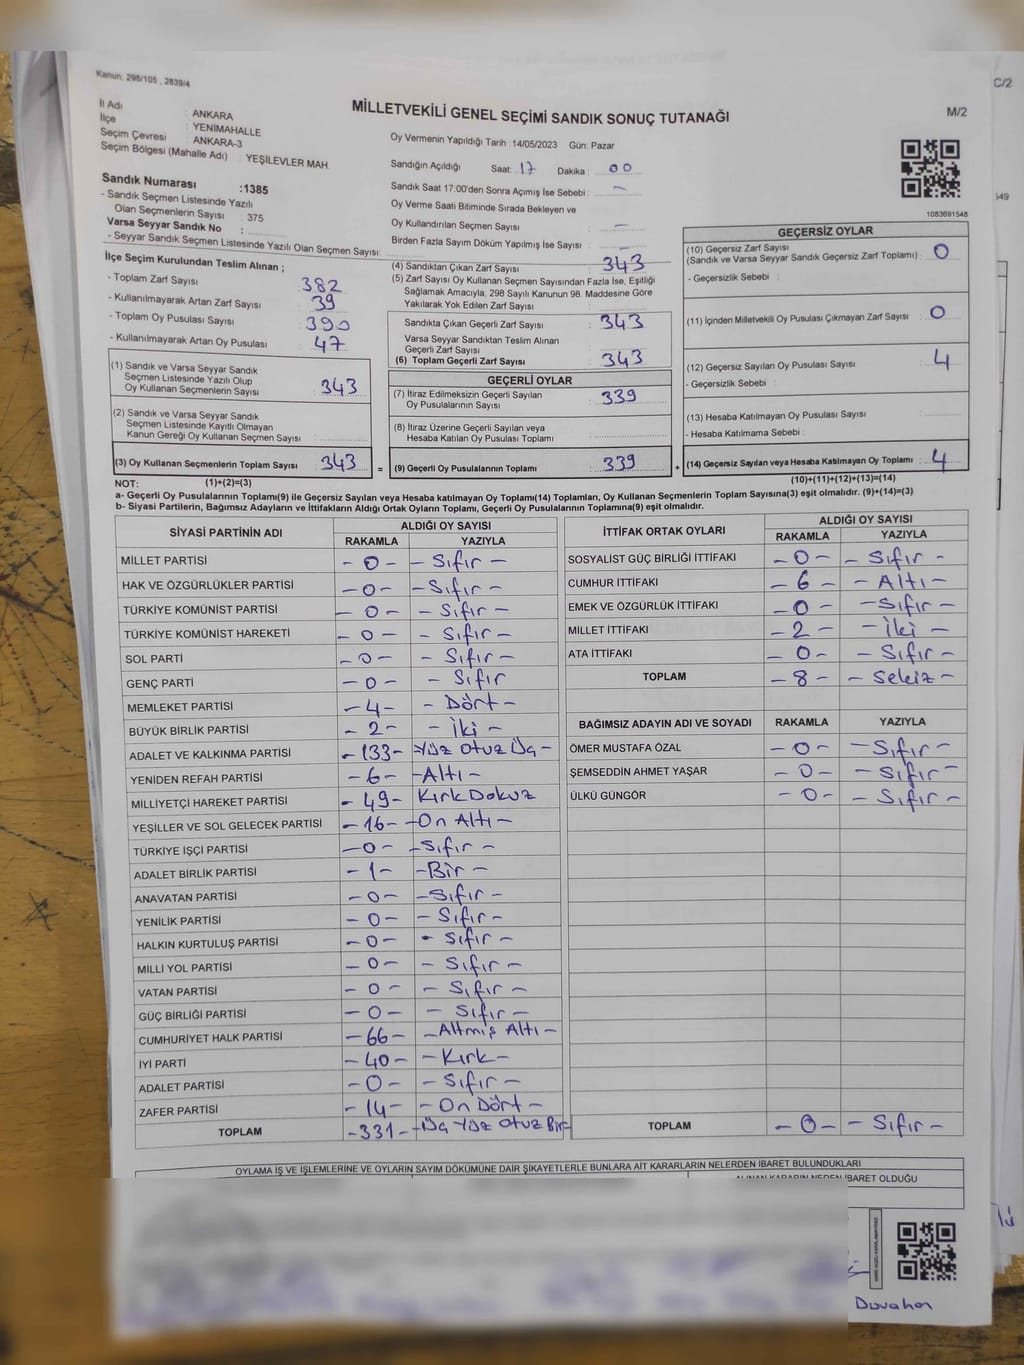 Kanun: 298/105 , 2839/4
C/2
MİLLETVEKİLİ GENEL SEÇİMİ SANDIK SONUÇ TUTANAĞI
M/2
İl Adı : ANKARA
İlçe : YENİMAHALLE
Seçim Çevresi : ANKARA-3
Seçim Bölgesi (Mahalle Adı) : YEŞİLEVLER MAH.
Sandık Numarası :1385
- Sandık Seçmen Listesinde Yazılı
Olan Seçmenlerin Sayısı : 375
Varsa Seyyar Sandık No :
- Seyyar Sandık Seçmen Listesinde Yazılı Olan Seçmen Sayısı:
Oy Vermenin Yapıldığı Tarih 14/05/2023 Gün: Pazar
Sandığın Açıldığı Saat: 17 Dakika : 00
Sandık Saat 17:00'den Sonra Açımış İse Sebebi : -
Oy Verme Saati Bitiminde Sırada Bekleyen ve
Oy Kullandırılan Seçmen Sayısı : -
Birden Fazla Sayım Döküm Yapılmış İse Sayısı : -
1083691548
İlçe Seçim Kurulundan Teslim Alınan ;
- Toplam Zarf Sayısı : 382
- Kullanılmayarak Artan Zarf Sayısı : 39
- Toplam Oy Pusulası Sayısı : 390
- Kullanılmayarak Artan Oy Pusulası : 47
(1) Sandık ve Varsa Seyyar Sandık
Seçmen Listesinde Yazılı Olup
Oy Kullanan Seçmenlerin Sayısı : 343
(2) Sandık ve Varsa Seyyar Sandık
Seçmen Listesinde Kayıtlı Olmayan
Kanun Gereği Oy Kullanan Seçmen Sayısı :
(3) Oy Kullanan Seçmenlerin Toplam Sayısı : 343 =
(4) Sandıktan Çıkan Zarf Sayısı : 343
(5) Zarf Sayısı Oy Kullanan Seçmen Sayısından Fazla İse, Eşitliği
Sağlamak Amacıyla; 298 Sayılı Kanunun 98. Maddesine Göre
Yakılarak Yok Edilen Zarf Sayısı :
Sandıkta Çıkan Geçerli Zarf Sayısı : 343
Varsa Seyyar Sandıktan Teslim Alınan
Geçerli Zarf Sayısı :
(6) Toplam Geçerli Zarf Sayısı : 343
GEÇERLİ OYLAR
(7) İtiraz Edilmeksizin Geçerli Sayılan
Oy Pusulalarının Sayısı : 339
(8) İtiraz Üzerine Geçerli Sayılan veya
Hesaba Katılan Oy Pusulası Toplamı :
(9) Geçerli Oy Pusulalarının Toplamı : 339 +
GEÇERSİZ OYLAR
(10) Geçersiz Zarf Sayısı
(Sandık ve Varsa Seyyar Sandık Geçersiz Zarf Toplamı) : 0
- Geçersizlik Sebebi :
(11) İçinden Milletvekili Oy Pusulası Çıkmayan Zarf Sayısı : 0
(12) Geçersiz Sayılan Oy Pusulası Sayısı : 4
- Geçersizlik Sebebi :
(13) Hesaba Katılmayan Oy Pusulası Sayısı :
- Hesaba Katılmama Sebebi :
(14) Geçersiz Sayılan veya Hesaba Katılmayan Oy Toplamı : 4
NOT: (1)+(2)=(3)
(10)+(11)+(12)+(13)=(14)
a- Geçerli Oy Pusulalarının Toplamı(9) ile Geçersiz Sayılan veya Hesaba katılmayan Oy Toplamı(14) Toplamları, Oy Kullanan Seçmenlerin Toplam Sayısına(3) eşit olmalıdır. (9)+(14)=(3)
b- Siyasi Partilerin, Bağımsız Adayların ve İttifakların Aldığı Ortak Oyların Toplamı, Geçerli Oy Pusulalarının Toplamına(9) eşit olmalıdır.
SİYASİ PARTİNİN ADI ALDIĞI OY SAYISI
RAKAMLA YAZIYLA
MİLLET PARTİSİ - 0 - - Sıfır -
HAK VE ÖZGÜRLÜKLER PARTİSİ - 0 - - Sıfır -
TÜRKİYE KOMÜNİST PARTİSİ - 0 - - Sıfır -
TÜRKİYE KOMÜNİST HAREKETİ - 0 - - Sıfır -
SOL PARTİ - 0 - - Sıfır -
GENÇ PARTİ - 0 - - Sıfır
MEMLEKET PARTİSİ - 4 - - Dört -
BÜYÜK BİRLİK PARTİSİ - 2 - - İki -
ADALET VE KALKINMA PARTİSİ - 133 - Yüz Otuz Üç -
YENİDEN REFAH PARTİSİ - 6 - - Altı -
MİLLİYETÇİ HAREKET PARTİSİ - 49 - Kırk Dokuz
YEŞİLLER VE SOL GELECEK PARTİSİ - 16 - - On Altı -
TÜRKİYE İŞÇİ PARTİSİ - 0 - - Sıfır -
ADALET BİRLİK PARTİSİ - 1 - - Bir -
ANAVATAN PARTİSİ - 0 - - Sıfır -
YENİLİK PARTİSİ - 0 - - Sıfır -
HALKIN KURTULUŞ PARTİSİ - 0 - - Sıfır -
MİLLİ YOL PARTİSİ - 0 - - Sıfır -
VATAN PARTİSİ - 0 - - Sıfır -
GÜÇ BİRLİĞİ PARTİSİ - 0 - - Sıfır -
CUMHURİYET HALK PARTİSİ - 66 - - Altmış Altı -
İYİ PARTİ - 40 - - Kırk -
ADALET PARTİSİ - 0 - - Sıfır -
ZAFER PARTİSİ - 14 - - On Dört -
TOPLAM - 331 - - Üç Yüz Otuz Bir -
İTTİFAK ORTAK OYLARI ALDIĞI OY SAYISI
RAKAMLA YAZIYLA
SOSYALİST GÜÇ BİRLİĞİ İTTİFAKI - 0 - - Sıfır -
CUMHUR İTTİFAKI - 6 - - Altı -
EMEK VE ÖZGÜRLÜK İTTİFAKI - 0 - - Sıfır -
MİLLET İTTİFAKI - 2 - - İki -
ATA İTTİFAKI - 0 - - Sıfır -
TOPLAM - 8 - - Sekiz -
BAĞIMSIZ ADAYIN ADI VE SOYADI RAKAMLA YAZIYLA
ÖMER MUSTAFA ÖZAL - 0 - - Sıfır -
ŞEMSEDDİN AHMET YAŞAR - 0 - - Sıfır -
ÜLKÜ GÜNGÖR - 0 - - Sıfır -
TOPLAM - 0 - - Sıfır -
OYLAMA İŞ VE İŞLEMLERİNE VE OYLARIN SAYIM DÖKÜMÜNE DAİR ŞİKAYETLERLE BUNLARA AİT KARARLARIN NELERDEN İBARET BULUNDUKLARI
ALINAN KARARIN NEDEN İBARET OLDUĞU